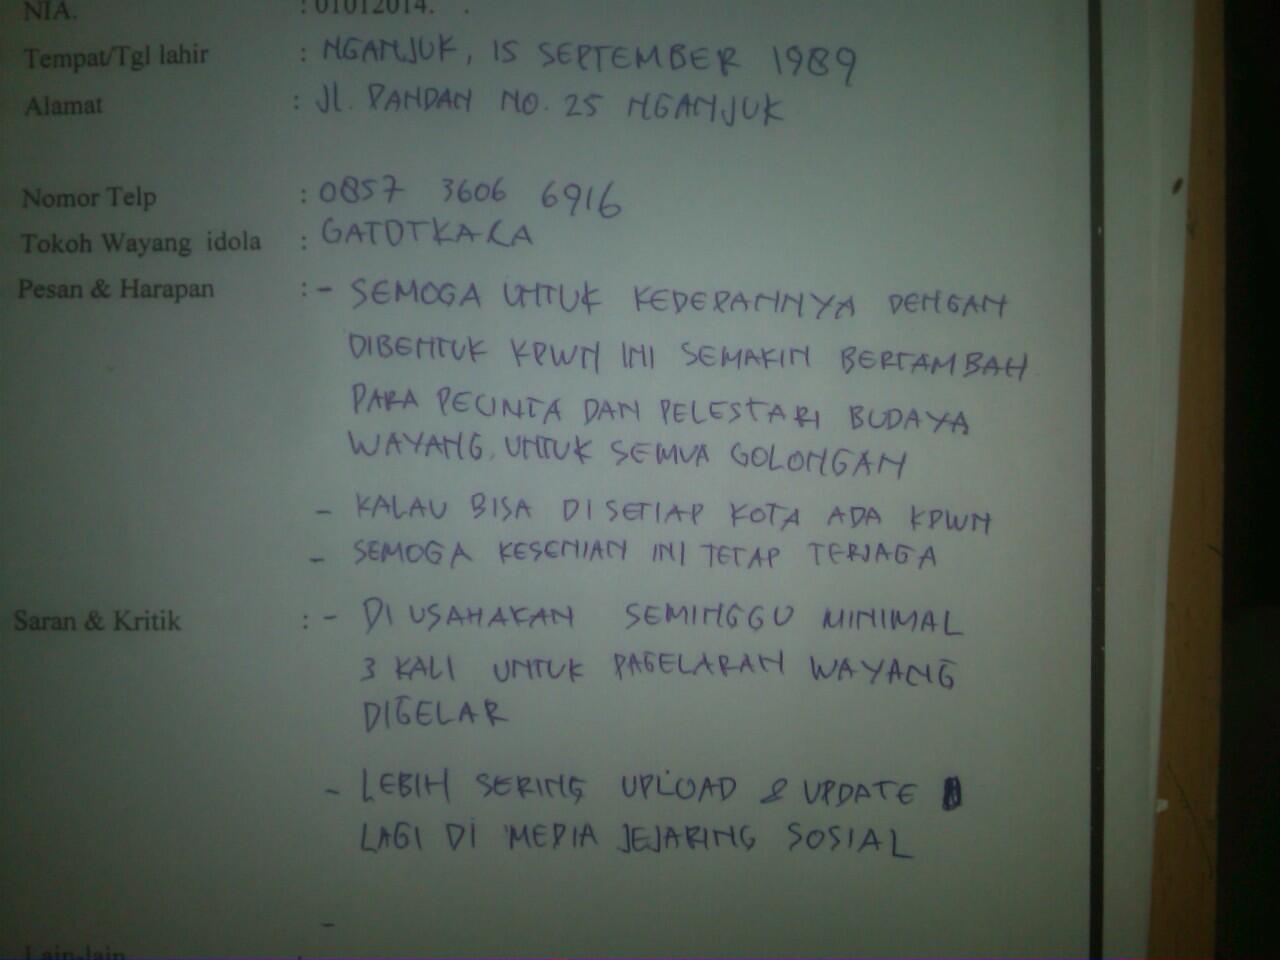 NIA. : 01012014.
Tempat/Tgl lahir : NGANJUK, 15 SEPTEMBER 1989
Alamat : Jl. PANDAN NO. 25 NGANJUK
Nomor Telp : 0857 3606 6916
Tokoh Wayang idola : GATOTKACA
Pesan & Harapan : - SEMOGA UNTUK KEDEPANNYA DENGAN
DIBENTUK KPWN INI SEMAKIN BERTAMBAH
PARA PECINTA DAN PELESTARI BUDAYA
WAYANG. UNTUK SEMUA GOLONGAN
- KALAU BISA DI SETIAP KOTA ADA KPWN
- SEMOGA KESENIAN INI TETAP TERJAGA
Saran & Kritik : - DI USAHAKAN SEMINGGU MINIMAL
3 KALI UNTUK PAGELARAN WAYANG
DIGELAR
- LEBIH SERING UPLOAD & UPDATE
LAGI DI MEDIA JEJARING SOSIAL
-
Lain-lain :